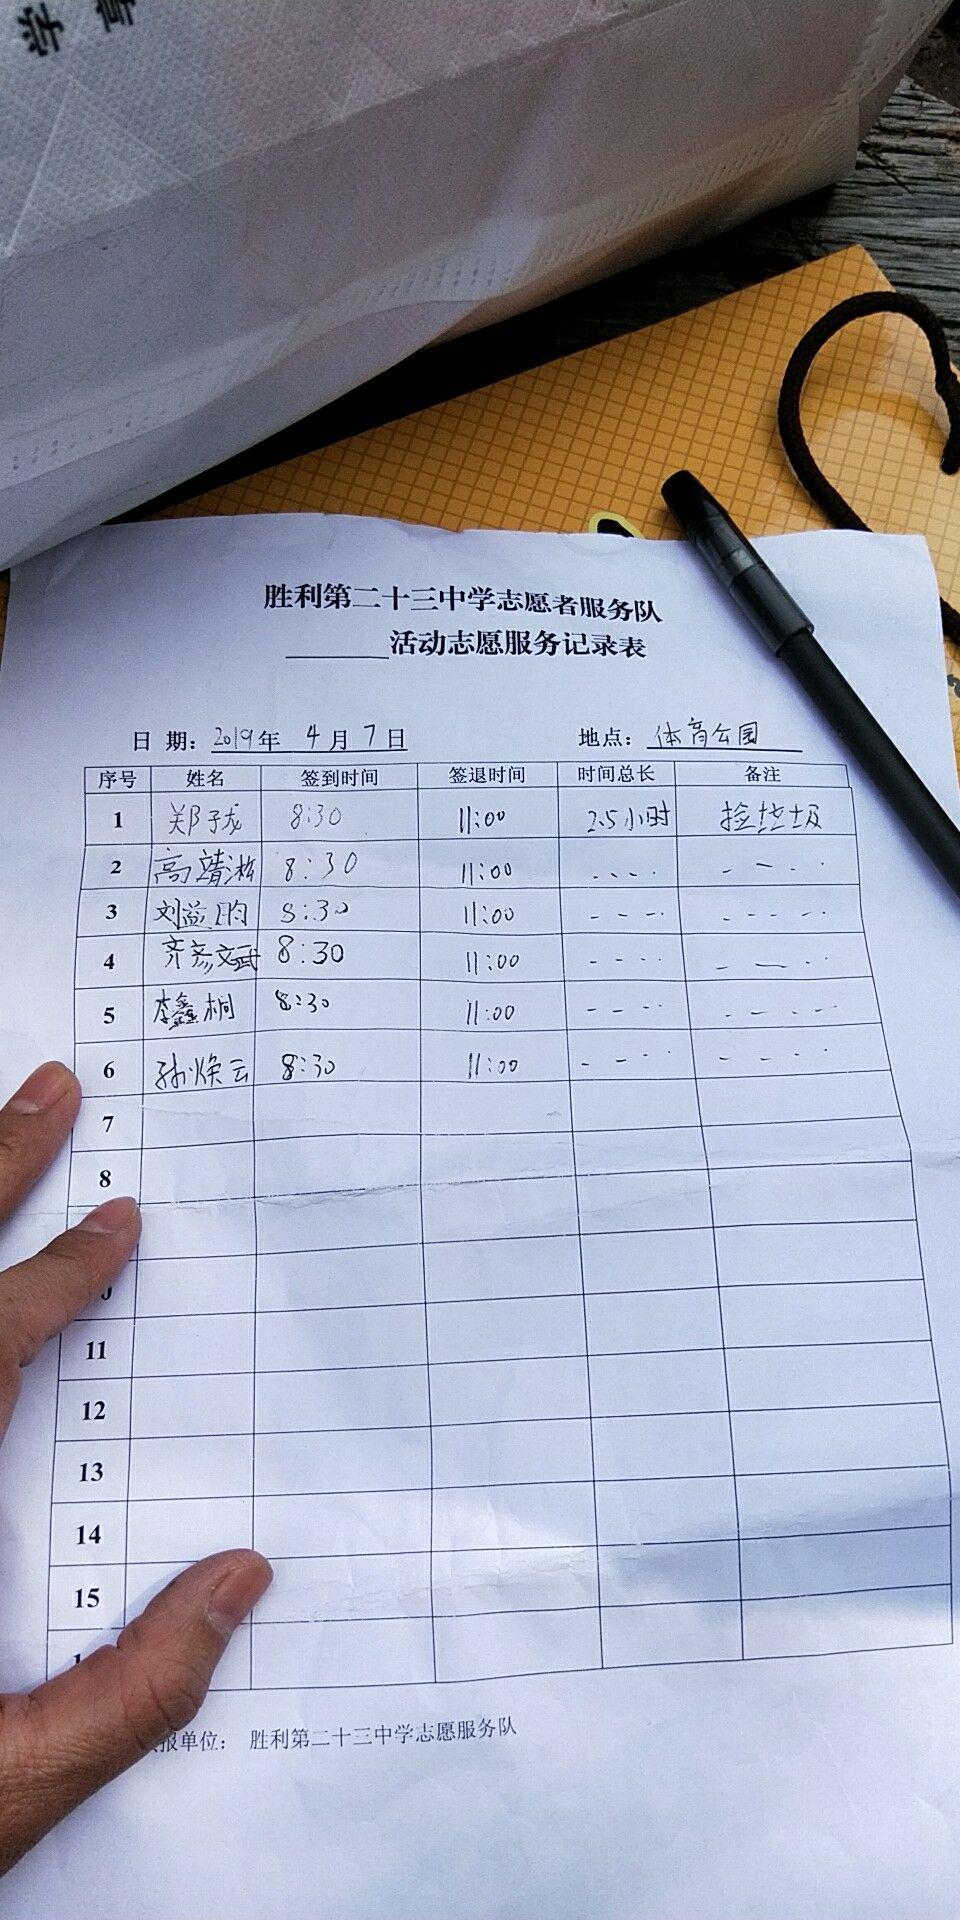 胜利第二十三中学志愿者服务队
______活动志愿服务记录表
日 期: 2019年 4月 7日 地点: 体育公园
序号 姓名 签到时间 签退时间 时间总长 备注
1 郑子龙 8:30 11:00 2.5小时 捡垃圾
2 高靖淞 8:30 11:00
3 刘益昀 8:30 11:00
4 齐彦文武 8:30 11:00
5 李鑫桐 8:30 11:00
6 孙焕云 8:30 11:00
7
8
11
12
13
14
15
报单位: 胜利第二十三中学志愿服务队